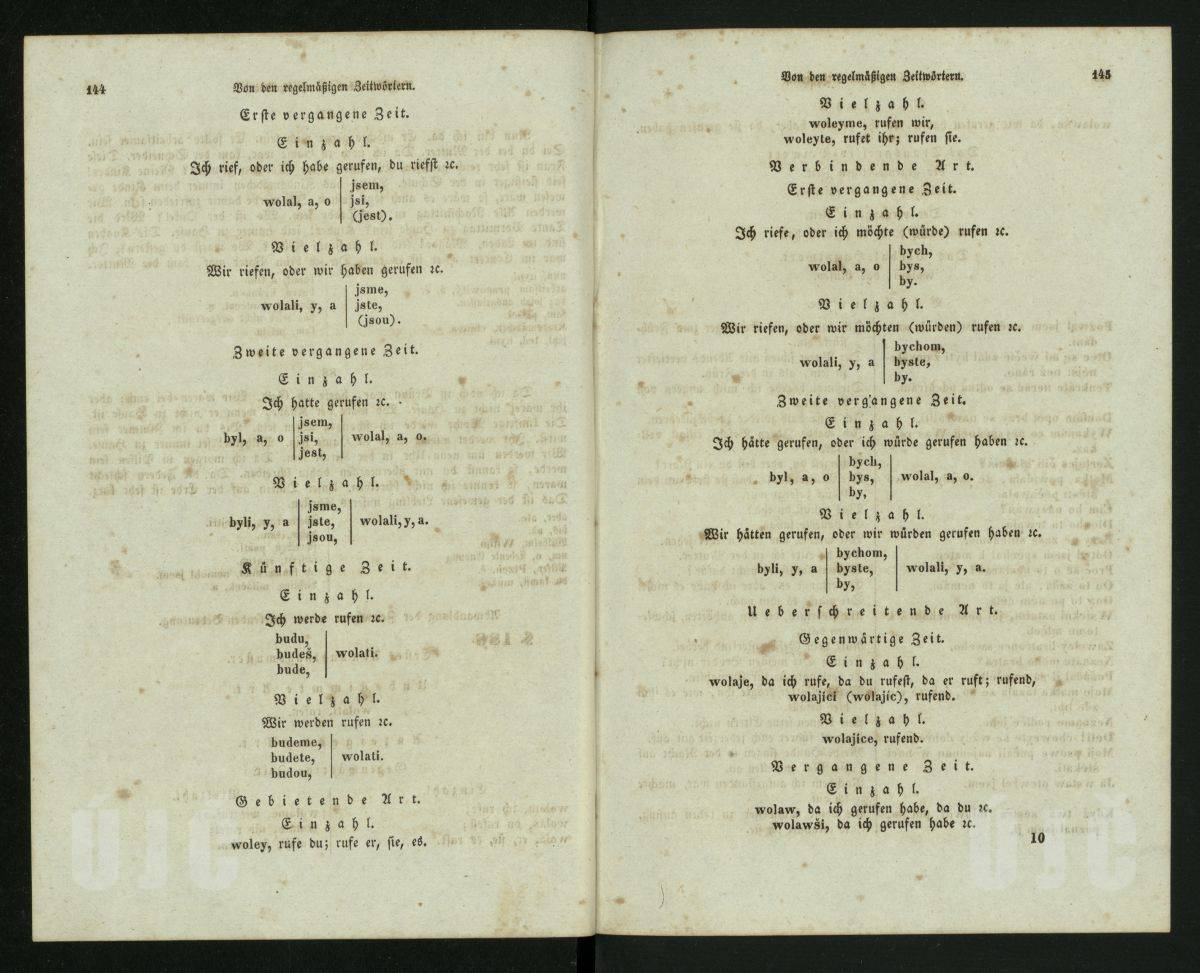 144
Von den regelmäßigen Zeitwörtern.
Erste vergangene Zeit.
Einzahl.
Ich rief, oder ich habe gerufen, du riefst ꝛc.
jsem,
wolal, a, o jsi,
(jest).
Vielzahl.
Wir riefen, oder wir haben gerufen ꝛc.
jsme,
wolali, y, a jste,
(jsou).
Zweite vergangene Zeit.
Einzahl.
Ich hatte gerufen ꝛc.
jsem,
byl, a, o jsi, wolal, a, o.
jest,
Vielzahl.
jsme,
byli, y, a jste, wolali, y, a.
jsou,
Künftige Zeit.
Einzahl.
Ich werde rufen ꝛc.
budu,
budeš, wolati.
bude,
Vielzahl.
Wir werden rufen ꝛc.
budeme,
budete, wolati.
budou,
Gebietende Art.
Einzahl.
woley, rufe du; rufe er, sie, es.
Von den regelmäßigen Zeitwörtern.
145
Vielzahl.
woleyme, rufen wir,
woleyte, rufet ihr; rufen sie.
Verbindende Art.
Erste vergangene Zeit.
Einzahl.
Ich riefe, oder ich möchte (würde) rufen ꝛc.
bych,
wolal, a, o bys,
by.
Vielzahl.
Wir riefen, oder wir möchten (würden) rufen ꝛc.
bychom,
wolali, y, a byste,
by.
Zweite vergangene Zeit.
Einzahl.
Ich hätte gerufen, oder ich würde gerufen haben ꝛc.
bych,
byl, a, o bys, wolal, a, o.
by,
Vielzahl.
Wir hätten gerufen, oder wir würden gerufen haben ꝛc.
bychom,
byli, y, a byste, wolali, y, a.
by,
Ueberschreitende Art.
Gegenwärtige Zeit.
Einzahl.
wolaje, da ich rufe, da du rufest, da er ruft; rufend,
wolající (wolajíc), rufend.
Vielzahl.
wolajíce, rufend.
Vergangene Zeit.
Einzahl.
wolaw, da ich gerufen habe, da du ꝛc.
wolawši, da ich gerufen habe ꝛc.
10